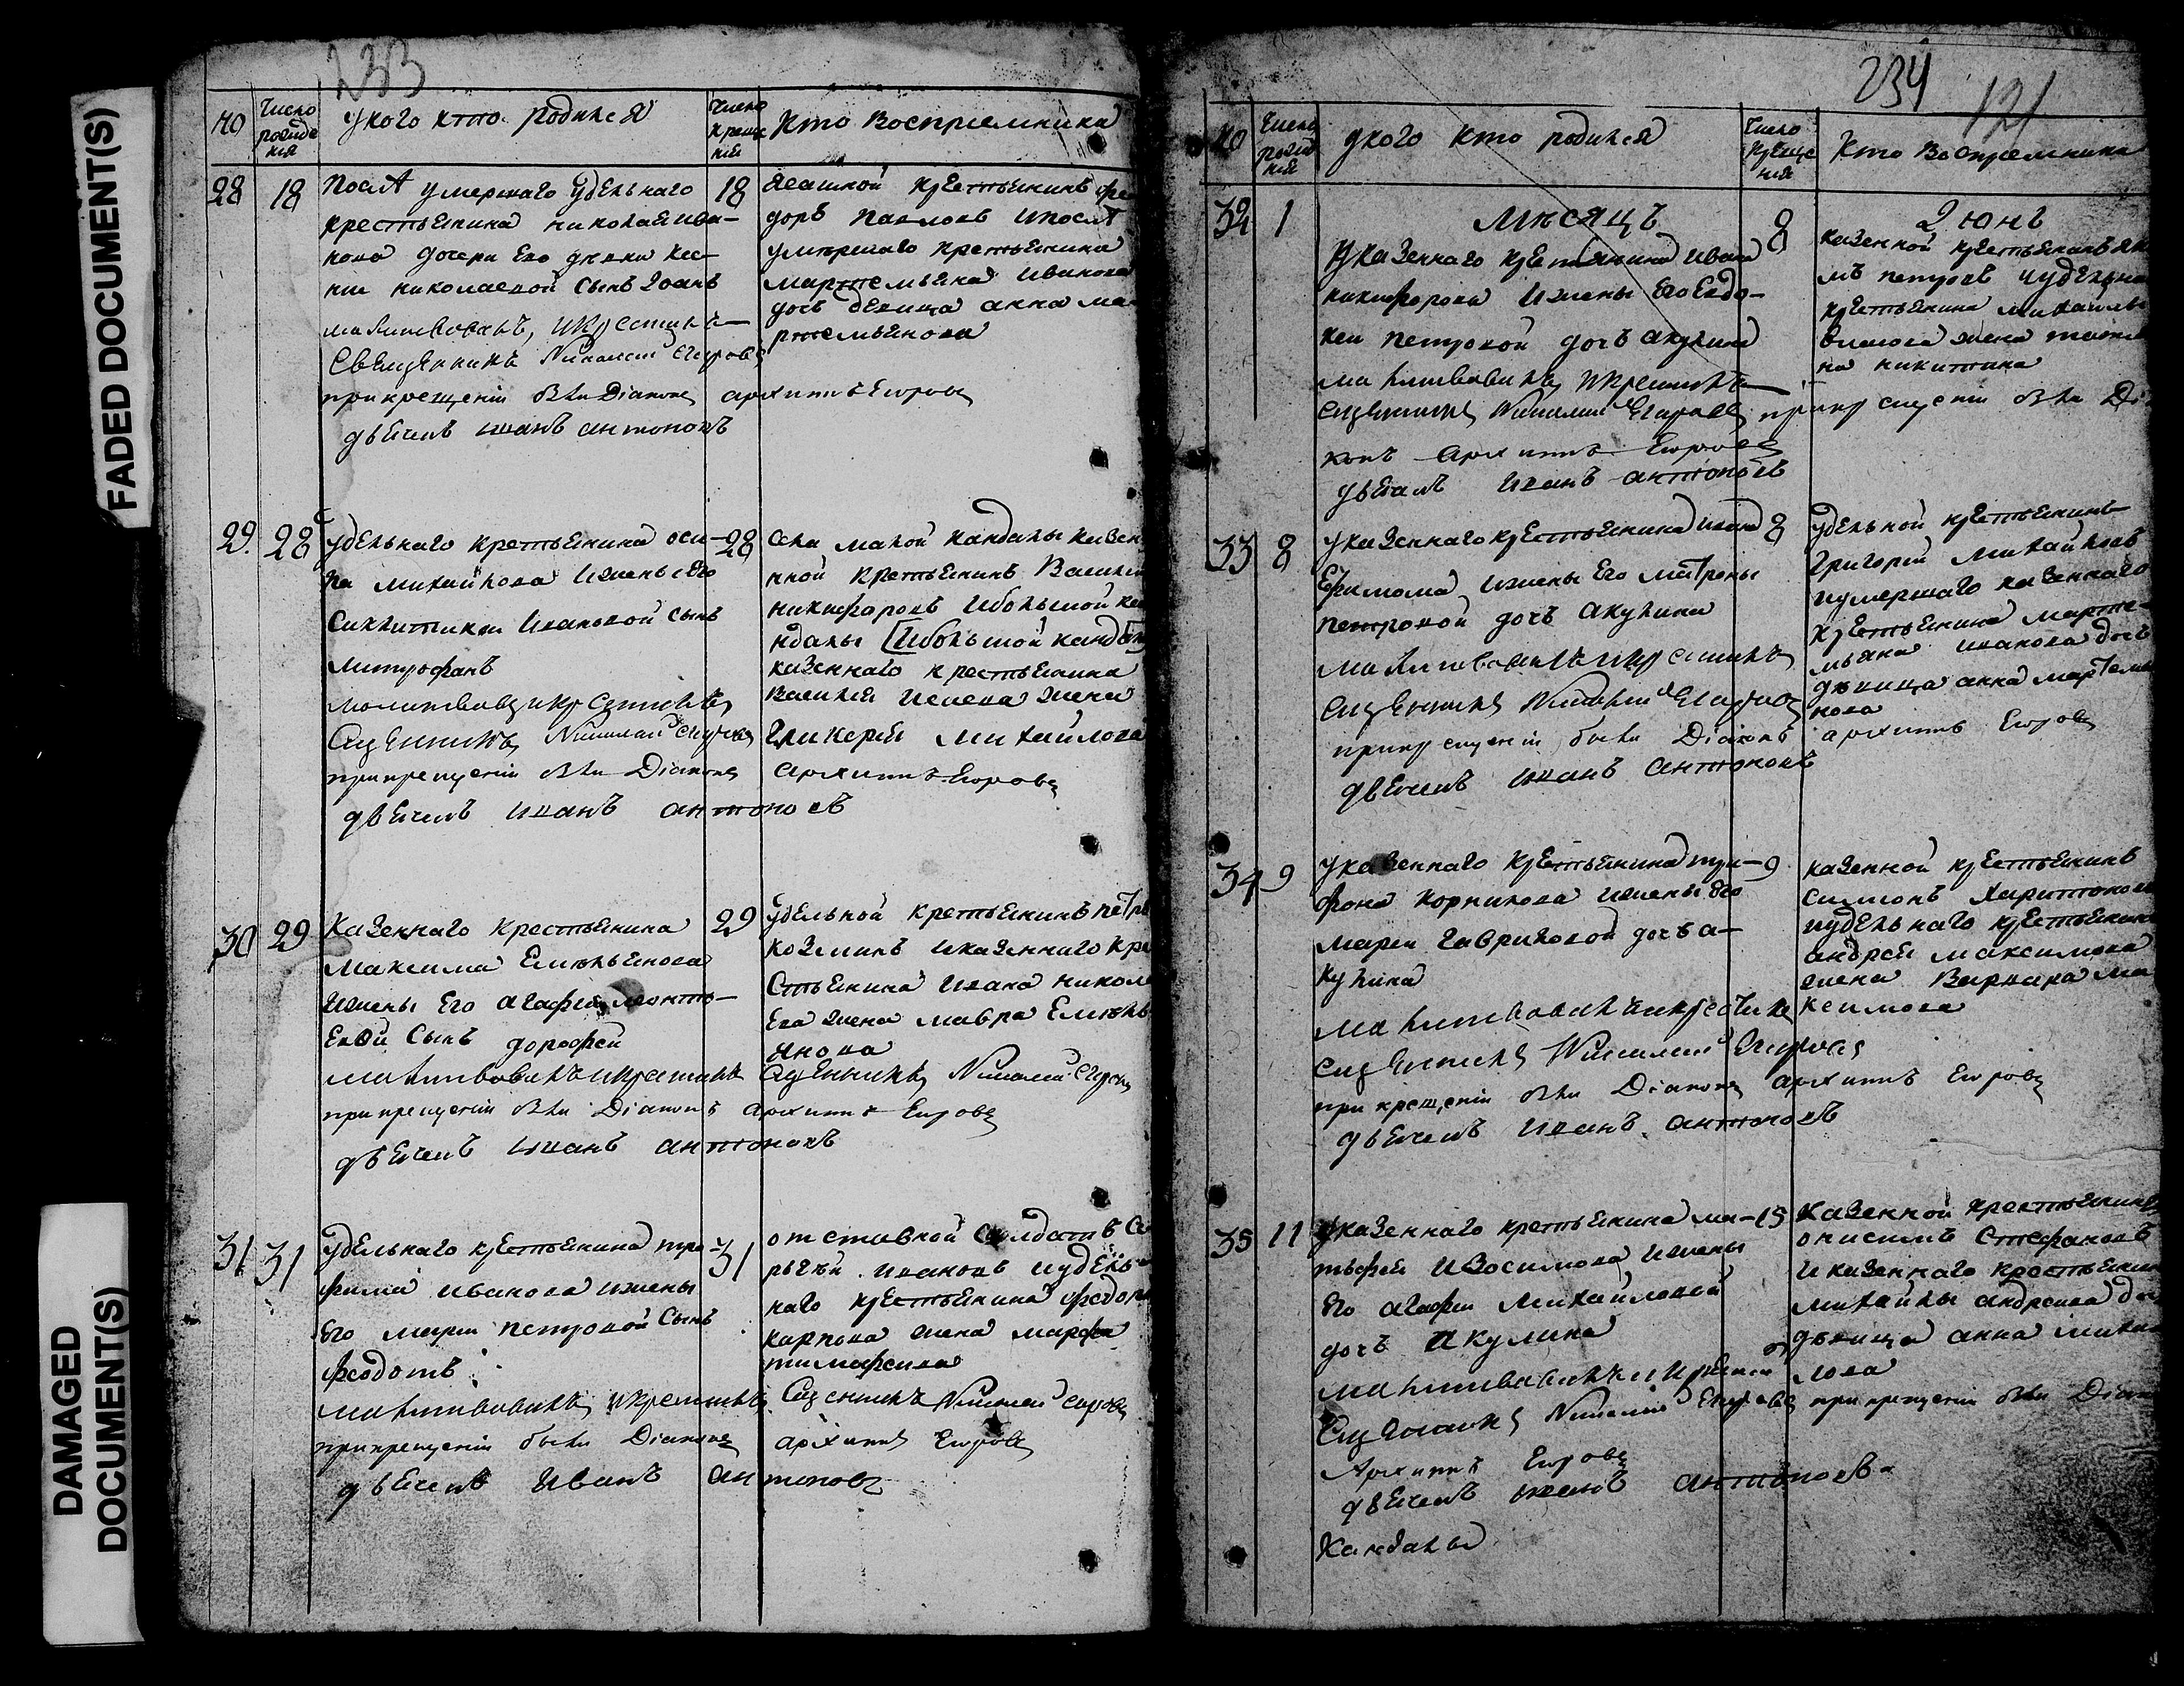 FADED DOCUMENT(S)
DAMAGED
DOCUMENT(S)
233
но
Число
рожде
нія
укого кто родился
Число
креще
нія
Кто Восприемники
28 18
после умершаго удельнаго
крестьянина николая ива-
нова дочери Его девки ксе-
нии николаевой сынъ Іоанъ
молитвовалъ, икрестилъ
Священникъ Николай Егоровъ
прикрещеніи Были Діаконъ архипъ Егоровъ
дьячекъ иванъ антоновъ
18
ясашной крестьянинъ фе
доръ павловъ ипосле
умершаго крестьянина
мартемьяна иванова
дочь девица анна ма-
ртемьянова
29. 28
удельнаго крестьянина оси-
па михайлова ижены Его
Синклитикеи Ивановой сынъ
митрофанъ
молитвовалъ икрестилъ
Сщенникъ Николай Егоровъ
прикрещеніи Были Діаконъ архипъ Егоровъ
дьячекъ иванъ антоновъ
28
села малой кандалы казен
нной крестьянинъ Василей
никифоровъ ибольшой ка
ндалы [ибольшой кандалы
казеннаго крестьянина
василья исаева жена
Гликерья михайлова
30 29
Казеннаго крестьянина
максима Емельянова
ижены Его агафьи леонть-
Евой Сынъ дорофей
молитвовалъ икрестилъ Сщенникъ Николай Егоровъ
прикрещеніи Были Діаконъ архипъ Егоровъ
дьячекъ иванъ антоновъ
29
удельной крестьянинъ петръ
козминъ иказеннаго кре
стьянина ивана никола
Ева жена мавра Емель
янова
31 31
удельнаго крестьянина тро-
фима иванова ижены
Его марьи петровой Сынъ
феодотъ
молитвовалъ икрестилъ Сщенникъ Николай Егоровъ
прикрещеніи были Діаконъ архипъ Егоровъ
дьячекъ Иванъ антоновъ
31
отставной солдатъ Са
иванокъ иудель
наго крестьянина федора
карпова жена марфа
тимофеева
234
121
но
Число
рожде
нія
укого кто родился
Число
креще
нія
Кто Восприемники
мѣсяцъ Іюнь
32 1
Указеннаго крестьянина ивана
никифорова ижены Его Евдо-
кеи петровой дочь акулина
молитвовалъ икрестилъ
сщенникъ Николай Егоровъ прикрещеніи Были Діа
конъ архипъ Егоровъ
дьячекъ иванъ антоновъ
8
казенной крестьянинъ аки
мъ петровъ иудельна
крестьянина михайлы
жена татья
на никитина
33 8
Указеннаго крестьянина ивана
Ефимова ижены Его матроны
петровой дочь акулина
молитвовалъ икрестилъ
сщенникъ Николай Егоровъ
прикрещеніи были Діаконъ архипъ Егоровъ
дьячекъ иванъ антоновъ
8
удельной крестьянинъ
григорей михайловъ
иумершаго казеннаго
крестьянина марте-
мьяна иванова дочь
девица анна мартемья
нова
34 9
Указеннаго крестьянина три-
фона корнилова ижены Его
марьи гавриловой дочь а-
кулина
молитвовалъ икрестилъ
сщенникъ Николай Егоровъ
при крещеніи Были Діаконъ архипъ Егоровъ
дьячекъ иванъ антоновъ
9
казенной крестьянинъ
симионъ харитоновъ
иудельнаго крестьянина
андрея максимова
жена Варвара ма
ксимова
35 11
Указеннаго крестьянина ма-
тьфея изосимова ижены
Его агафьи михайловой
дочь акулина
молитвовалъ икрестилъ
Сщенникъ Николай Егоровъ прикрещеніи Были Діако
Архипъ Егоровъ
дьячекъ иванъ антоновъ
Кандалы
15
казенной крестьянинъ
онисимъ стефановъ
и казеннаго крестьянин
михайлы андреева до
девица анна михай
лова